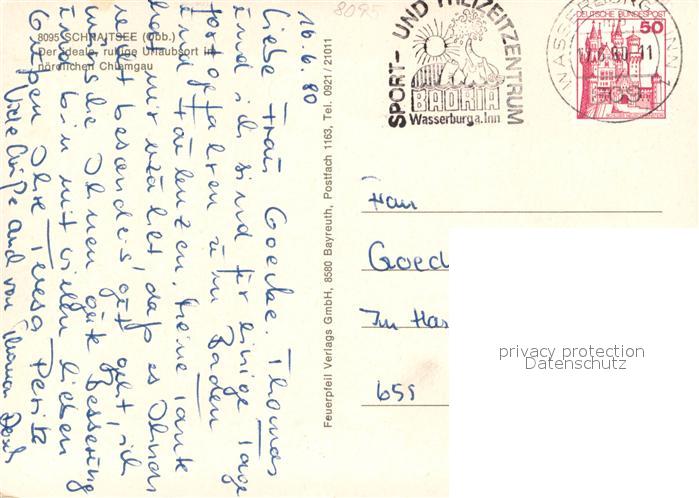 8095 SCHNAITSEE (Obb.)
Der ideale, ruhige Urlaubsort im
nördlichen Chiemgau
16.6.80
Liebe Frau Goecke. Thomas
und ich sind für einige Tage
fortgefahren zum Baden
und Faulenzen. Meine Tante
hat mir erzählt, daß es Ihnen
nicht besonders gut geht, ich
wünsche Ihnen gute Besserung
und bin mit vielen lieben
Grüßen Ihre
Viele Grüße auch von Thomas
Feuerpfeil Verlags GmbH, 8580 Bayreuth, Postfach 1163, Tel. 0921/21011
8095
SPORT- UND FREIZEITZENTRUM
BADRIA
Wasserburg a. Inn
WASSERBURG, INN
.6.80-11
DEUTSCHE BUNDESPOST
50
Frau
Goed
Im Has
privacy protection
Datenschutz